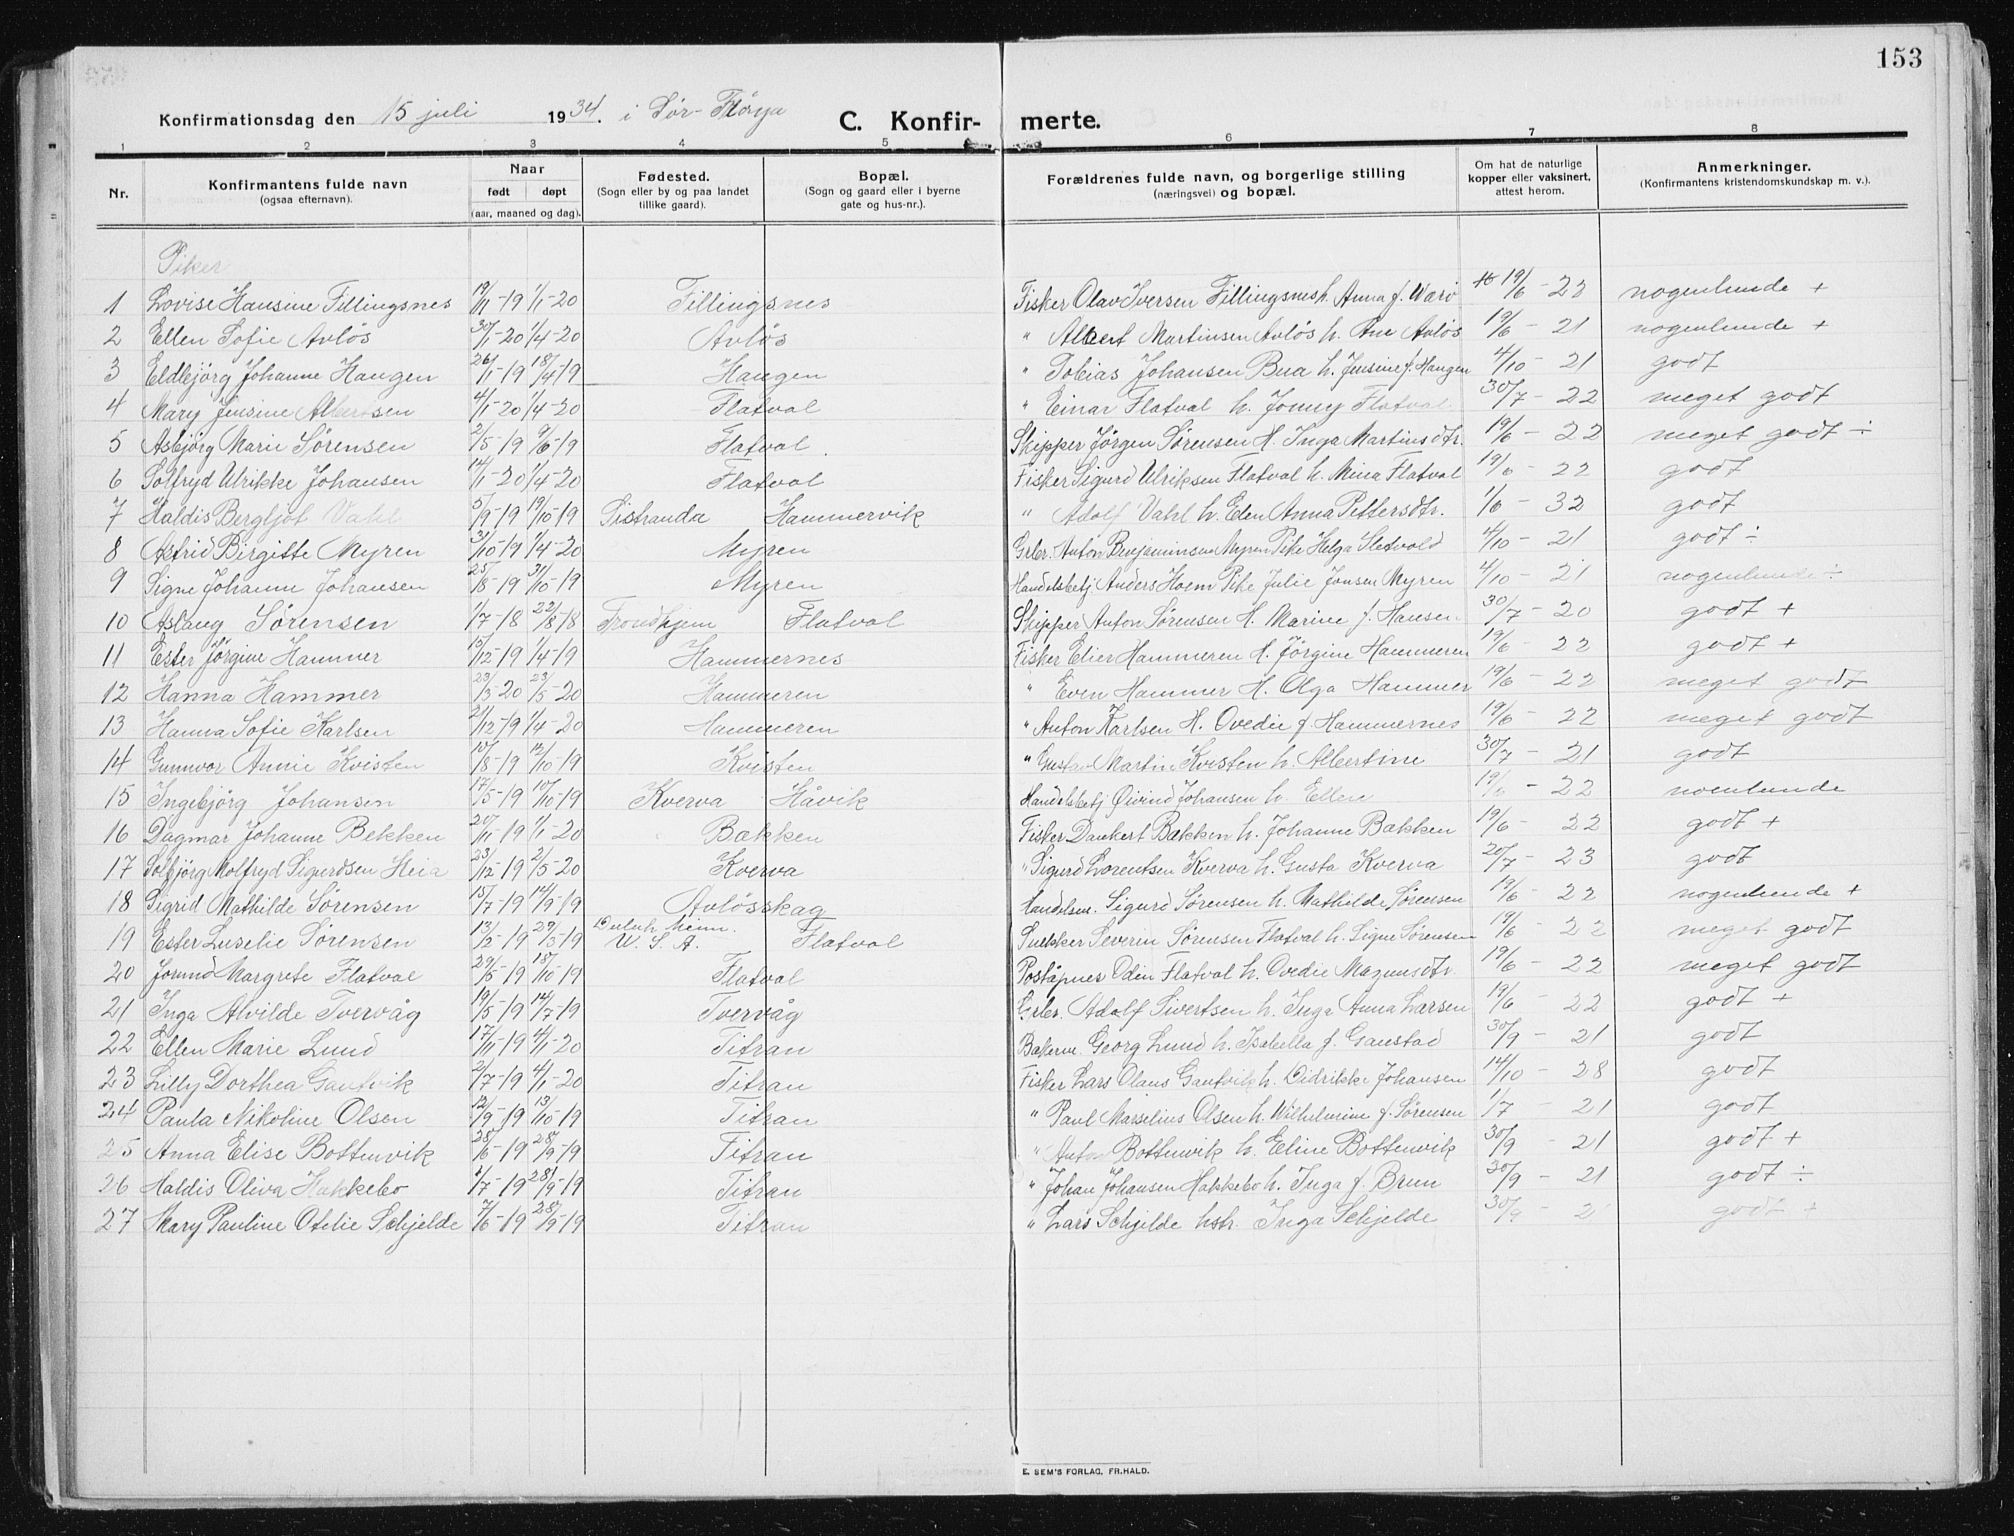 153
Konfirmationsdag den 15 juli 1934. i Sør-Frøya
C. Konfir- merte.
1 2 3 4 5 6 7 8
Nr. Konfirmantens fulde navn (ogsaa efternavn). Naar født døpt (aar, maaned og dag). Fødested. (Sogn eller by og paa landet tillike gaard). Bopæl. (Sogn og gaard eller i byerne gate og hus-nr.). Forældrenes fulde navn, og borgerlige stilling (næringsvei) og bopæl. Om hat de naturlige kopper eller vaksinert, attest herom. Anmerkninger. (Konfirmantens kristendomskundskap m. v.).
Piker
1 Lovise Hansine Tillingsnes 19/11-19 1/1-20 Tillingsnes Fisker Olav Iversen Tillingsnes h. Anna f. Værø 19/6-22 nogenlunde +
2 Ellen Sofie Avløs 30/1-20 1/4-20 Avløs " Albert Martinsen Avløs h. Ane Avløs 19/6-21 nogenlunde +
3 Eldbjörg Johanne Haugen 26/11-19 18/4-19 Haugen " Tobias Johansen Bua h. Jensine f. Haugen 4/10-21 godt
4 Mary Jensine Albertsen 4/1-20 1/4-20 Flatval " Einar Flatval h. Jonny Flatval 30/7-22 meget godt
5 Asbjörg Marie Sørensen 2/5-19 9/6-19 Flatval Skipper Jörgen Sørensen H. Inga Martinsdtr. 19/6-22 meget godt ÷
6 Solfryd Ulrikke Johansen 14/1-20 1/4-20 Flatval Fisker Sigurd Ulriksen Flatval h. Mina Flatval 19/6-22 godt
7 Haldis Bergljot Vahl 5/9-19 19/10-19 Sistranda Hammervik " Adolf Vahl h. Elen Anna Pettersdtr. 1/6-32 godt
8 Astrid Birgitte Myren 31/10-19 1/4-20 Myren Grbr. Anton Benjaminsen Myren Pike Helga Sletvold 4/10-21 godt ÷
9 Signe Johanne Johansen 25/8-19 31/10-19 Myren Handelsbetj Anders Hoem Pike Julie Jonsen Myren 4/10-21 nogenlunde ÷
10 Aslaug Sørensen 1/7-18 22/8-18 Trondhjem Flatval Skipper Anton Sørensen H. Marine f. Hansen 30/7-20 godt +
11 Ester Jörgine Hammer 15/12-19 1/4-19 Hammernes Fisker Elier Hammeren H. Jörgine Hammeren 19/6-22 godt +
12 Hanna Hammer 23/3-20 23/5-20 Hammeren " Even Hammer H. Olga Hammer 19/6-22 meget godt
13 Hanna Sofie Karlsen 21/12-19 1/4-20 Hammeren " Anton Karlsen H. Ovedie f. Hammernes 19/6-22 meget godt
14 Gunnvor Annie Kvisten 15/8-19 12/10-19 Kvisten " Gusta- Martin Kvisten h. Albertine 30/7-21 godt
15 Ingebjörg Johansen 17/5-19 10/10-19 Kverva Håvik Handelsbetj Øivind Johansen h. Ellen 19/6-22 noenlunde
16 Dagmar Johanne Bekken 20/11-19 1/1-20 Bækken Fisker Dankert Bækken h. Johanne Bækken 19/6-22 godt +
17 Solbjörg Molfryd Sigurdsen Heia 23/12-19 2/5-20 Kverva " Sigurd Lorentsen Kverva h. Gusta Kverva 20/7-23 godt
18 Sigrid Mathilde Sørensen 15/7-19 14/9-19 Avløsskag Handelsm. Sigurd Sørensen h. Mathilde Sørensen 19/6-22 nogenlunde +
19 Ester Luselie Sørensen 13/2-19 29/3-19 Duluh Minn. U.S.A. Flatval Snekker Severin Sørensen Flatval h. Signe Sørensen 19/6-22 meget godt
20 Jorund Margrete Flatval 22/5-19 18/10-19 Flatval Poståpner Odin Flatval h. Ovedie Magnusdtr. 19/6-22 meget godt
21 Inga Alvilde Tvervåg 19/5-19 14/7-19 Tvervåg Grbr. Adolf Sivertsen h. Inga Anna Larsen 19/6-22 godt +
22 Ellen Marie Lund 17/11-19 4/1-20 Titran Bakerm. Georg Lund h. Isabella f. Gaustad 30/9-21 godt
23 Lilly Dorthea Gautvik 2/7-19 4/1-20 Titran Fisker Lars Olaus Gautvik h. Didrikke Johansen 14/10-28 godt
24 Paula Nikoline Olsen 12/9-19 13/10-19 Titran " Paul Marselius Olsen h. Wilhelmine f. Sørensen 1/7-21 godt
25 Anna Elise Bottenvik 28/6-19 28/9-19 Titran " Anton Bottenvik h. Eline Bottenvik 30/9-21 godt +
26 Haldis Oliva Hakkebo 1/7-19 28/9-19 Titran " Johan Johansen Hakkebo h. Inga f. Brun 30/9-21 godt ÷
27 Mary Pauline Otelie Schjelde 7/6-19 28/9-19 Titran " Lars Schjelde hstr. Inga Schjelde 30/9-2 godt +
E. SEM'S FORLAG, FR.HALD.